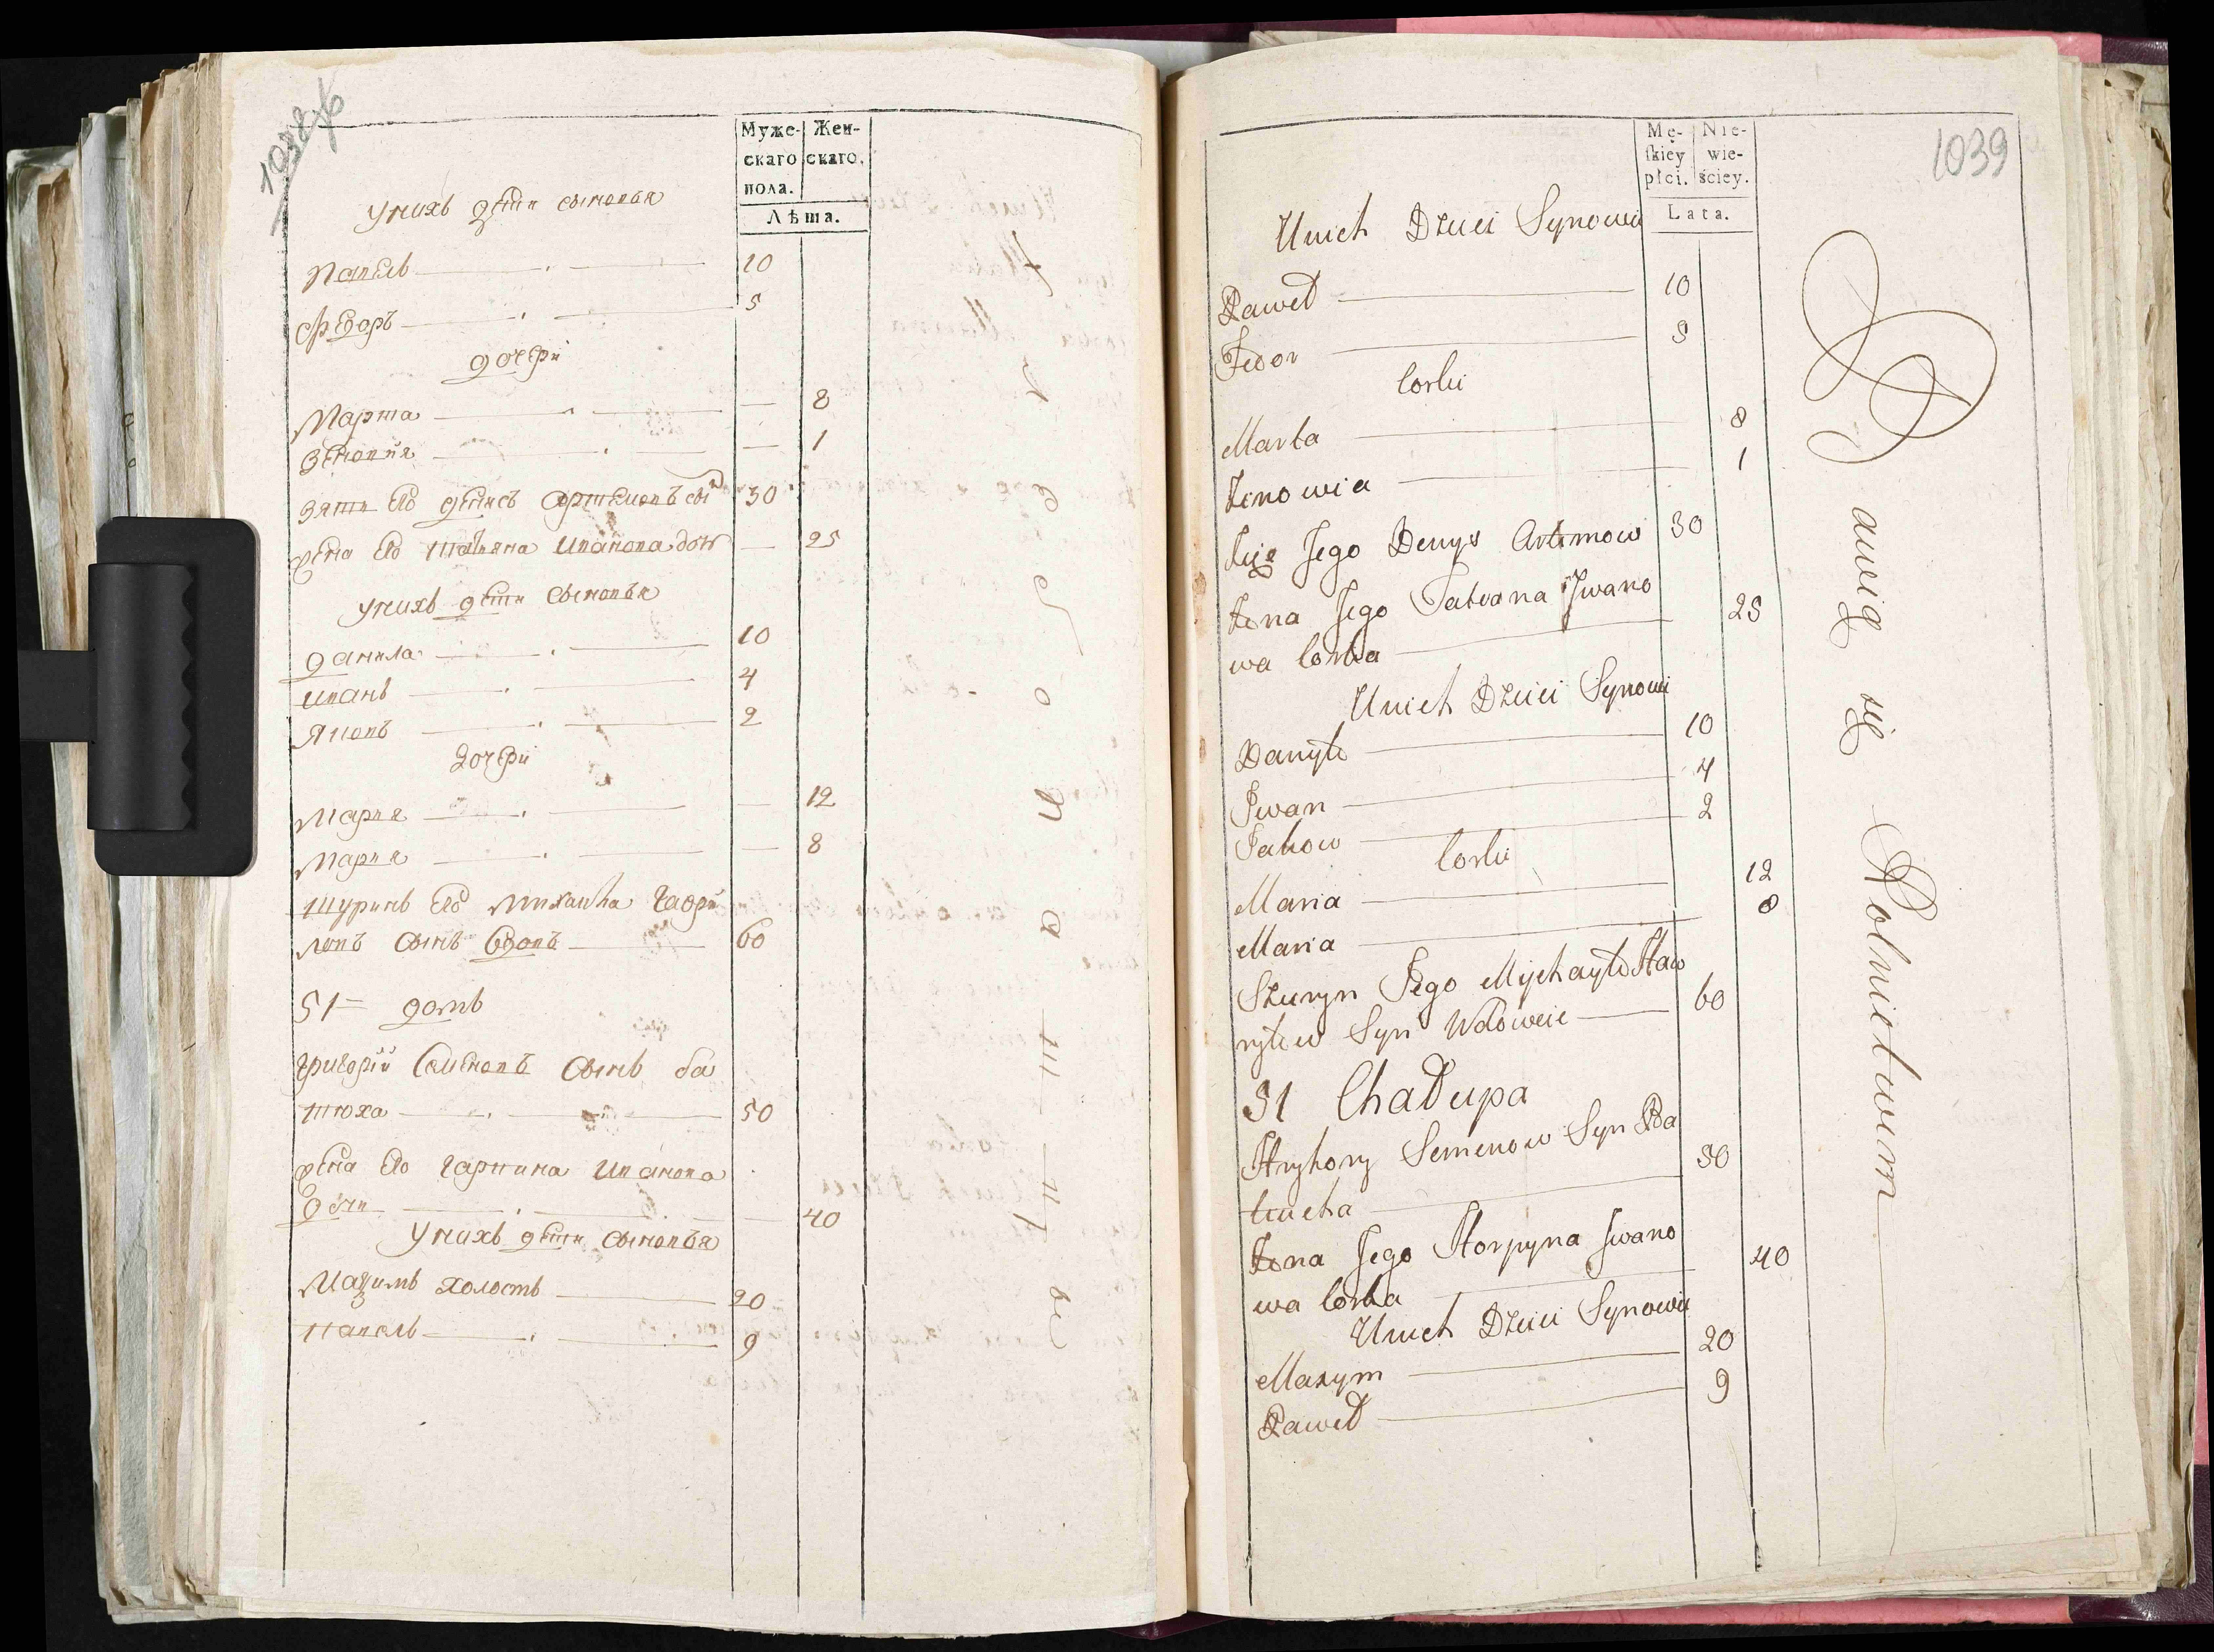 1038об
Муже-
скаго
пола.
Жен-
скаго.
Лѣта.
У нихъ дѣти сыновья
Павелъ 10
Федоръ 5
дочери
Марта — 8
Зеновия — 1
Зять Его Денисъ Артемовъ сы 30
жена Его Татьяна Иванова дочь — 25
У нихъ дѣти сыновья
Данила 10
Иванъ 4
Яковъ 2
дочери
Мария — 12
Мария — 8
Шуринъ Его Михайла Гаври
ловъ сынъ вдовъ 60
51 домъ
Григорій Семеновъ сынъ ба
тюха 50
жена Его Гарпина Иванова
дочь — 40
У нихъ дѣти сыновья
Мазимъ холостъ 20
Павелъ 9
1039
Mę-
skiey
płci.
Nie-
wie-
ściey.
Lata.
U nich Dzieci Synowie
Paweł 10
Fedor 5
Corki
Marta 8
Zenowia 1
Zięć Jego Denys Artemow 30
Zona Jego Tatiana Jwano
wa Corka 25
U nich Dzieci Synowie
Danyło 10
Jwan 4
Jakow 2
Corki
Maria 12
Maria 8
Szuryn Jego Mychayło Haw
ryłow Syn Wdowiec 60
51 Chałupa
Hryhory Semenow Syn Ba
tiucha 50
Zona Jego Horpyna Jwano
wa Corka 40
U nich Dzieci Synowie
Maxym 20
Paweł 9
Bawią się Rolnictwem